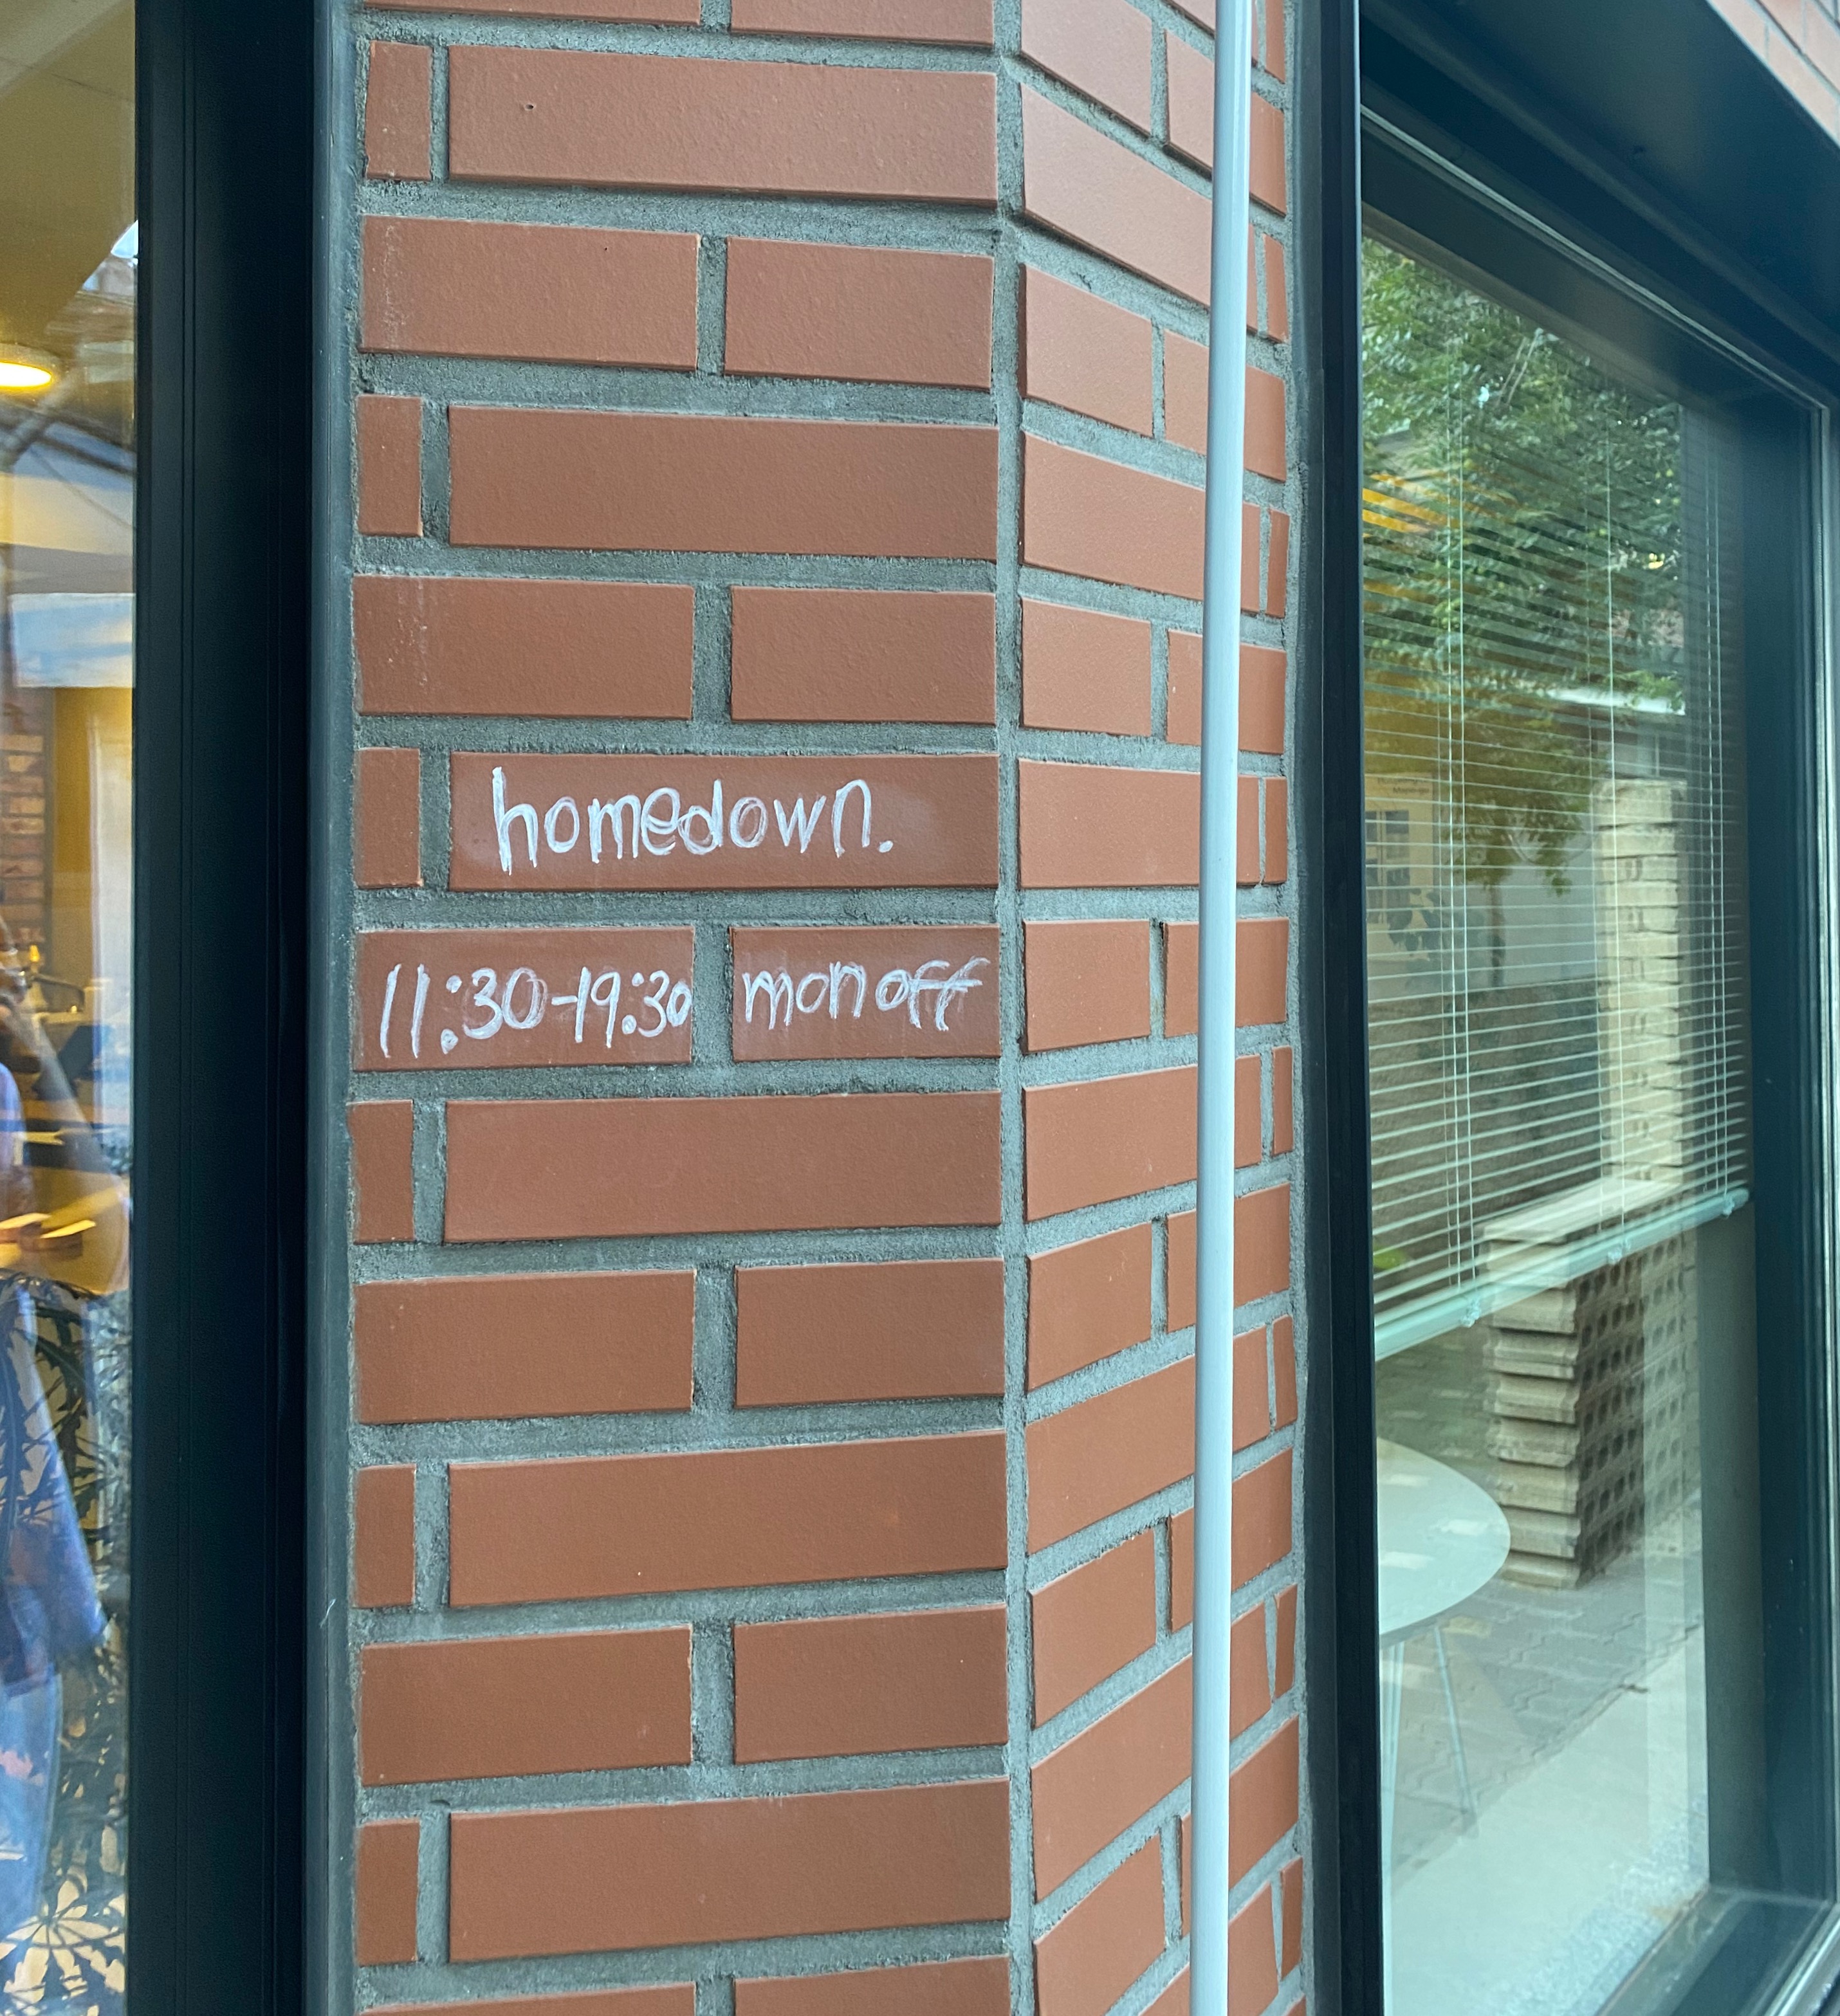 homedown.
11:30-19:30 mon off